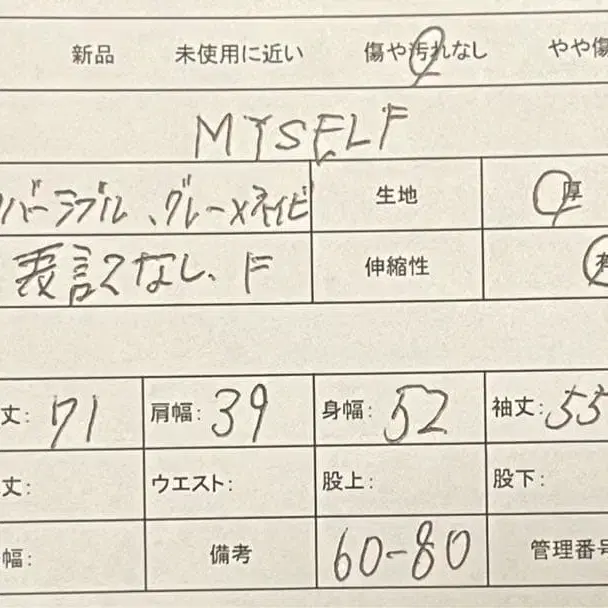 新品 未使用に近い 傷や汚れなし やや傷
MYSELF
バーラブル、グレー×ネイビ 生地 厚
表記なし、F 伸縮性
丈: 71 肩幅: 39 身幅: 52 袖丈: 55
丈: ウエスト: 股上: 股下:
幅: 備考 60-80 管理番号